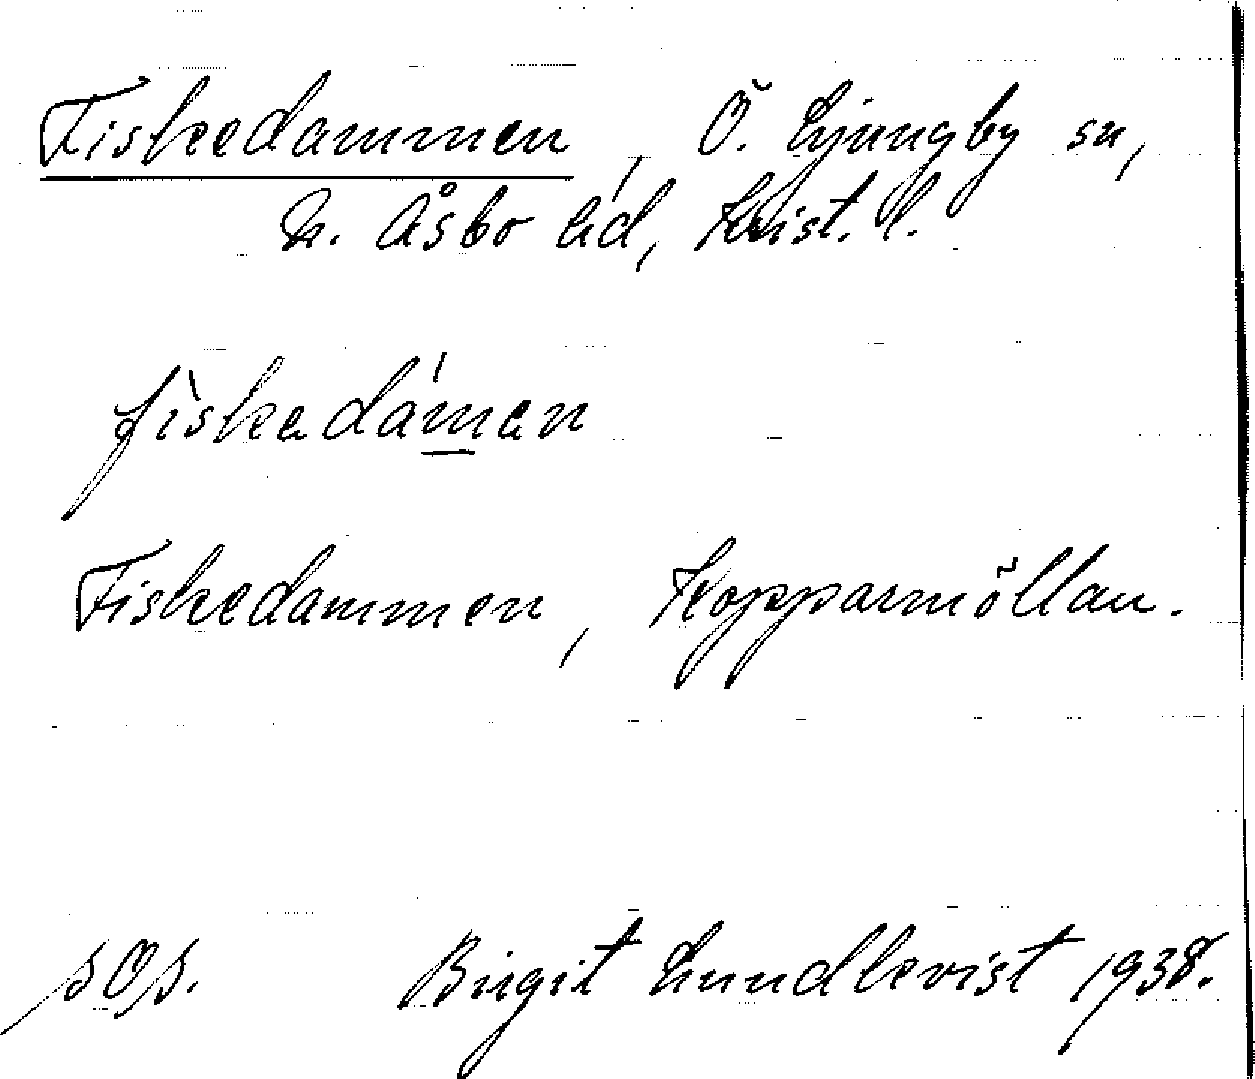 Fiskedammen, Ö. Ljungby sn,
N. Åsbo hd, Krist. l.
fìskedámen
Fiskedammen, Kopparmöllan.
sOs. Birgit Lundkvist 1938.